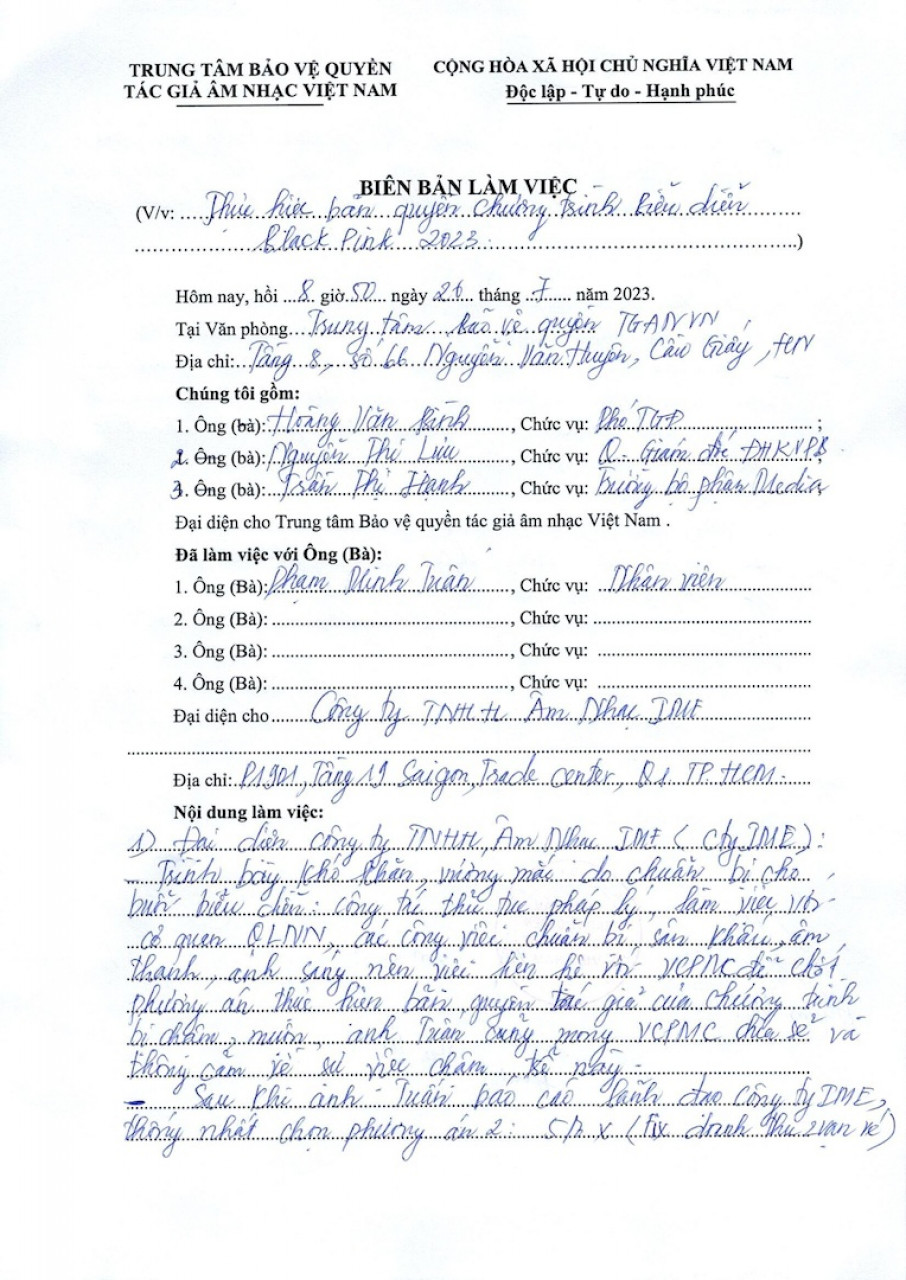 TRUNG TÂM BẢO VỆ QUYỀN
TÁC GIẢ ÂM NHẠC VIỆT NAM
CỘNG HÒA XÃ HỘI CHỦ NGHĨA VIỆT NAM
Độc lập - Tự do - Hạnh phúc
BIÊN BẢN LÀM VIỆC
(V/v: Thực hiện bản quyền chương trình biểu diễn
Black Pink 2023.)
Hôm nay, hồi 8 giờ 50 ngày 26 tháng 7 năm 2023.
Tại Văn phòng Trung tâm bảo vệ quyền TGANVN
Địa chỉ: Tầng 8, số 66 Nguyễn Văn Huyên, Cầu Giấy, HN
Chúng tôi gồm:
1. Ông (bà): Hoàng Văn Bình, Chức vụ: Phó TGĐ;
2. Ông (bà): Nguyễn Thị Lưu, Chức vụ: Q. Giám đốc ĐHKVPB
3. Ông (bà): Trần Thị Hạnh, Chức vụ: Trưởng bộ phận Media
Đại diện cho Trung tâm Bảo vệ quyền tác giả âm nhạc Việt Nam .
Đã làm việc với Ông (Bà):
1. Ông (Bà): Phạm Minh Tuân, Chức vụ: Nhân viên
2. Ông (Bà): , Chức vụ:
3. Ông (Bà): , Chức vụ:
4. Ông (Bà): , Chức vụ:
Đại diện cho Công ty TNHH Âm Nhạc IME
Địa chỉ: P1901, Tầng 19 Saigon Trade center, Q1 TP. HCM.
Nội dung làm việc:
1) Đại diện công ty TNHH Âm Nhạc IME (Cty IME):
- Trình bày khó khăn, vướng mắc do chuẩn bị cho
buổi biểu diễn: công tác thủ tục pháp lý, làm việc với
cơ quan QLNN, các công việc chuẩn bị sân khấu, âm
thanh, ánh sáng nên việc liên hệ với VCPMC để chốt
phương án thực hiện bản quyền tác giả của chương trình
bị chậm, muộn, anh Tuân cũng mong VCPMC chia sẻ và
thông cảm về sự việc chậm trễ này.
- Sau khi anh Tuấn báo cáo lãnh đạo công ty IME,
thống nhất chọn phương án 2: 5% x (fix doanh thu 2 vạn vé)